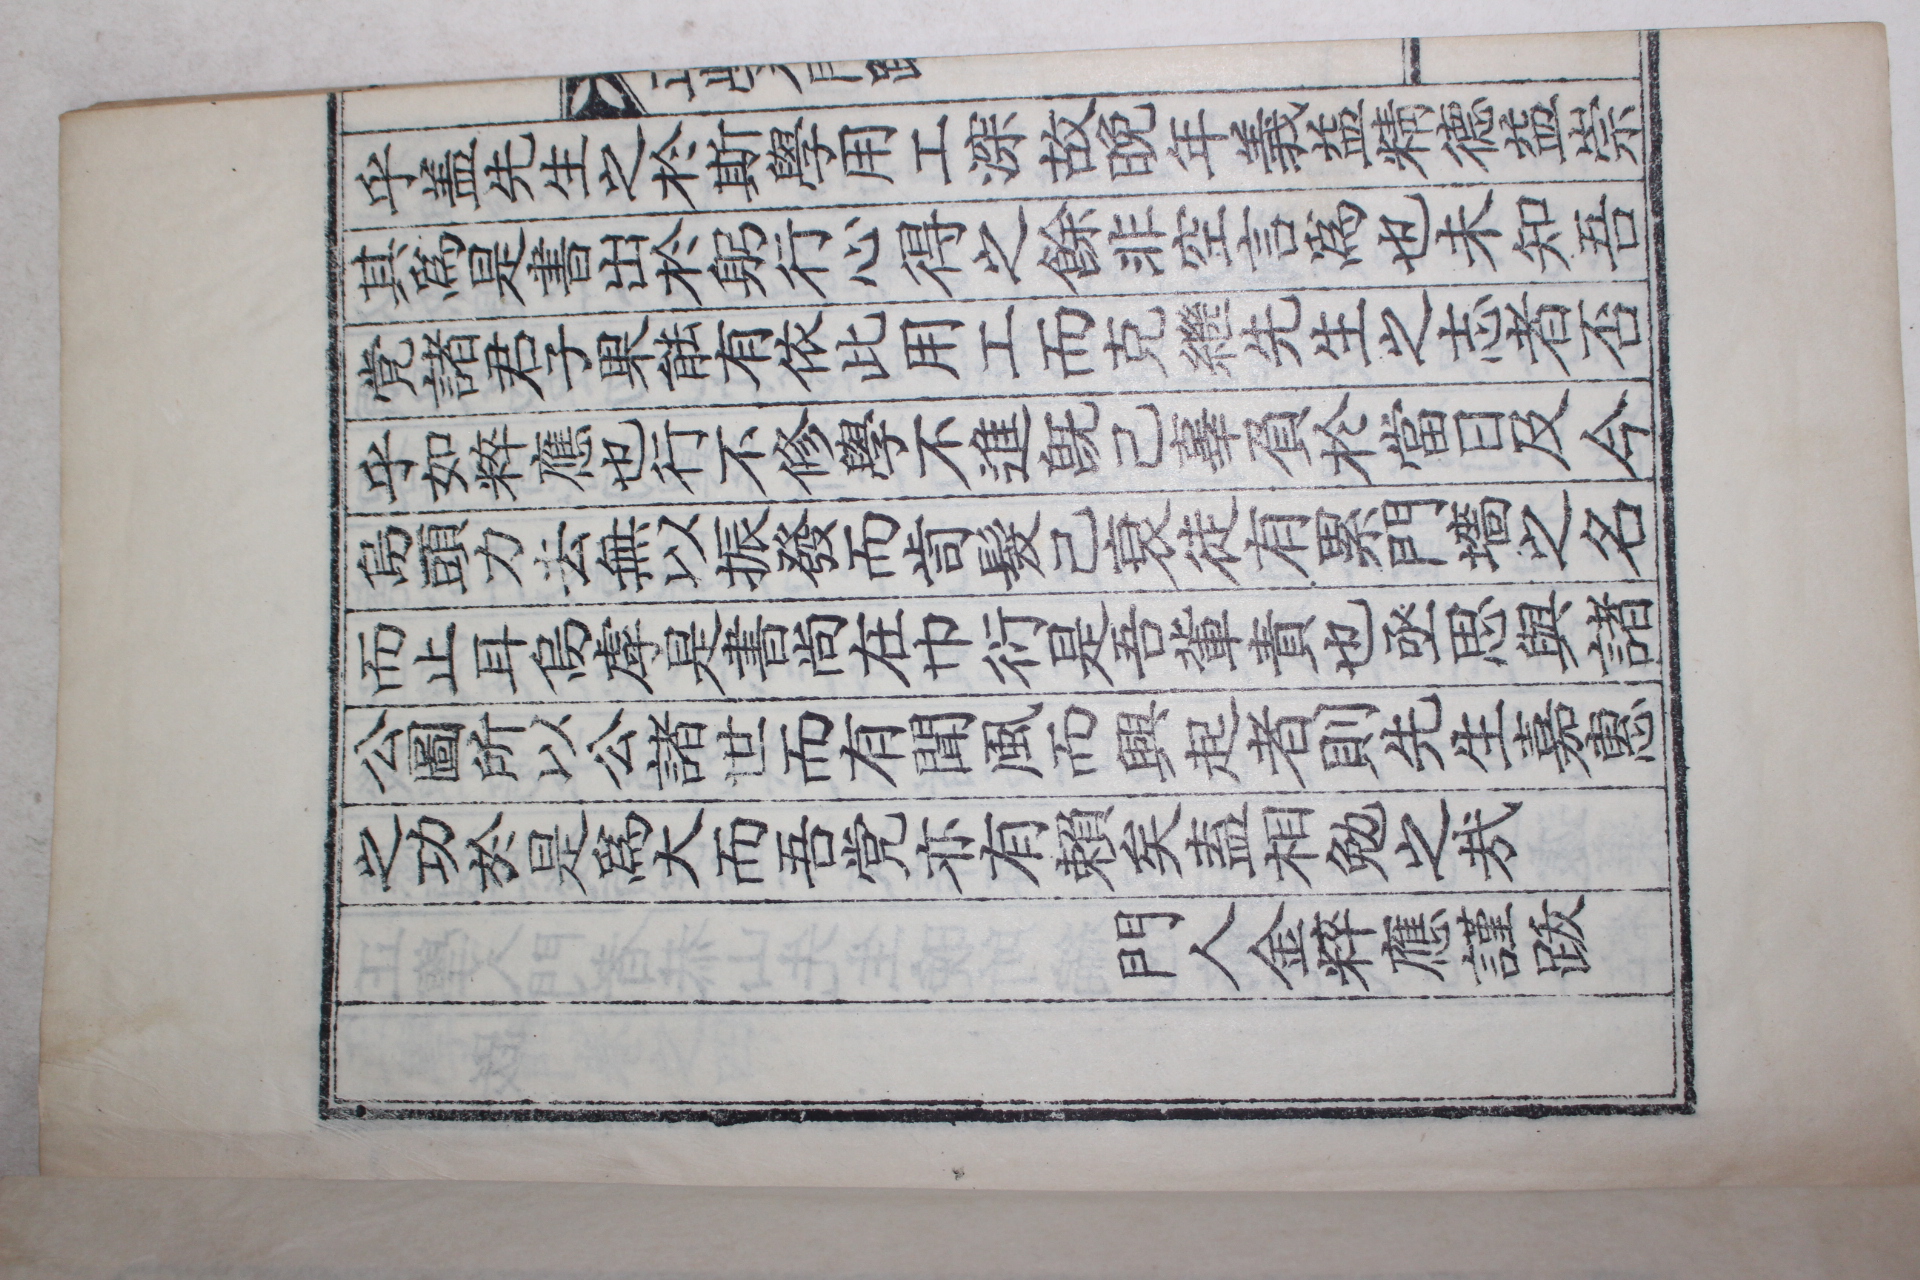 乎盖先生之於斯學用工深故晩年義益精德益崇
其爲是書出於躬行心得之餘非空言爲也未知吾
党諸君子果能有依此用工而克繼先生之志者否
乎如粹應也行不修學不進旣已辜負於當日及今
烏頭力去無以振發而髮已衰徒有累門墻之名
而止耳烏虖是書尚在巾衍是吾輩責也亟思與諸
公圖所以公諸世而有聞風而興起者則先生嘉惠
之功於是爲大而吾党亦有賴矣盍相勉之哉
門人金粹應謹跋